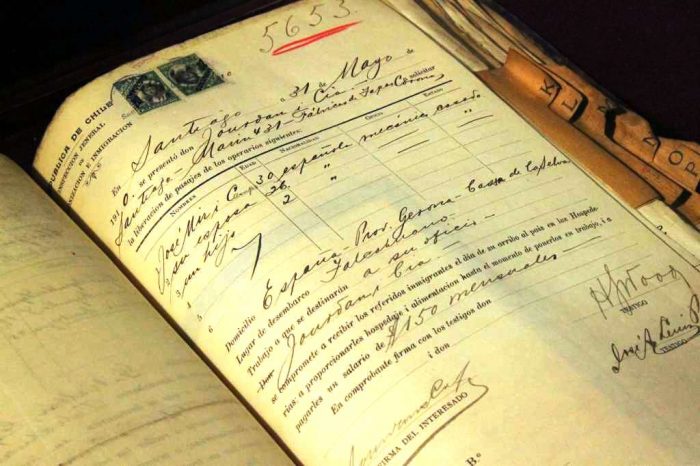 5653
PUBLICA DE CHILE
INSPECCION JENERAL
NIZACION E INMIGRACION
En Santiago a 31 de Mayo de
1910. se presentó don Jourdan i Cia solicitar
Santiago Marin 431 Fábrica de Tapas Corona,
la liberacion de pasajes de los operarios siguientes:
NOMBRES EDAD NACIONALIDAD OFICIO ESTADO
1 José Miri C 30 española mecánico casado
2 su esposa 26 " " "
3 un hijo 2 "
6
Domicilio España - Prov. Gerona - Cassá de la Selva
Lugar de desembarco Talcahuano
Trabajo a que se destinarán a su oficio
Don Jourdan i Cia
se compromete a recibir los referidos inmigrantes el dia de su arribo al pais en los Hospede
rias, a proporcionarles hospedaje i alimentacion hasta el momento de ponerlos en trabajo, i a
pagarles un salario de $150 mensuales
En comprobante firma con los testigos don
i don
TESTIGO
José A.
TESTIGO
FIRMA DEL INTERESADO
V.º B.º
K L M O P